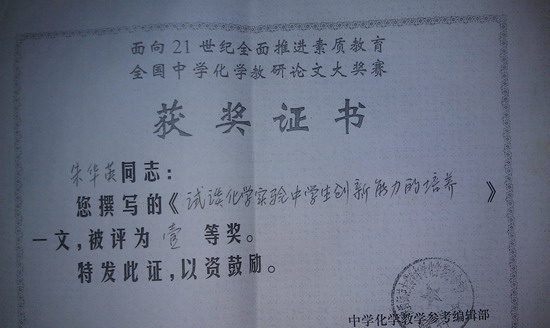 面向21世纪全面推进素质教育
全国中学化学教研论文大奖赛
获奖证书
朱华英同志：
您撰写的《试谈化学实验中学生创新能力的培养》
一文，被评为壹等奖。
特发此证，以资鼓励。
中学化学教学参考编辑部